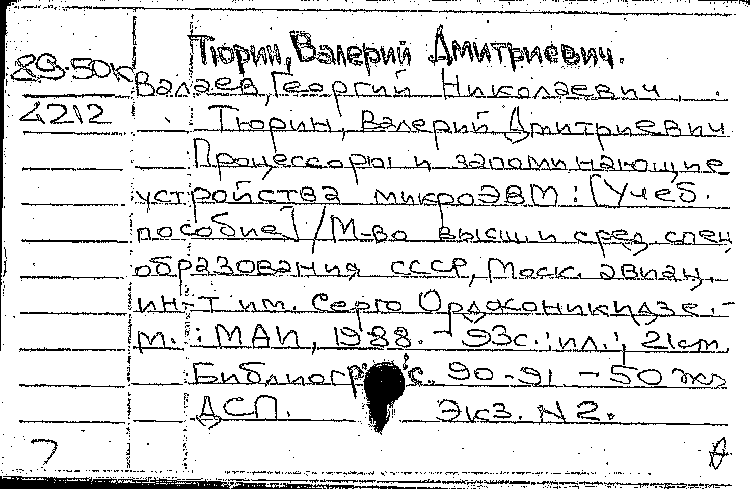 Тюрин, Валерий Дмитриевич.
89-50к
Валаев, Георгий Николаевич,
4212
Тюрин, Валерий Дмитриевич
Процессоры и запоминающие
устройства микроЭВМ : [Учеб.
пособие] / М-во высш. и сред. спец.
образования СССР, Моск. авиац.
ин-т им. Серго Орджоникидзе. -
М. : МАИ, 1988. - 93с. : ил. ; 21см.
Библиогр. с. 90-91 - 50 экз
ДСП. Экз. N2.